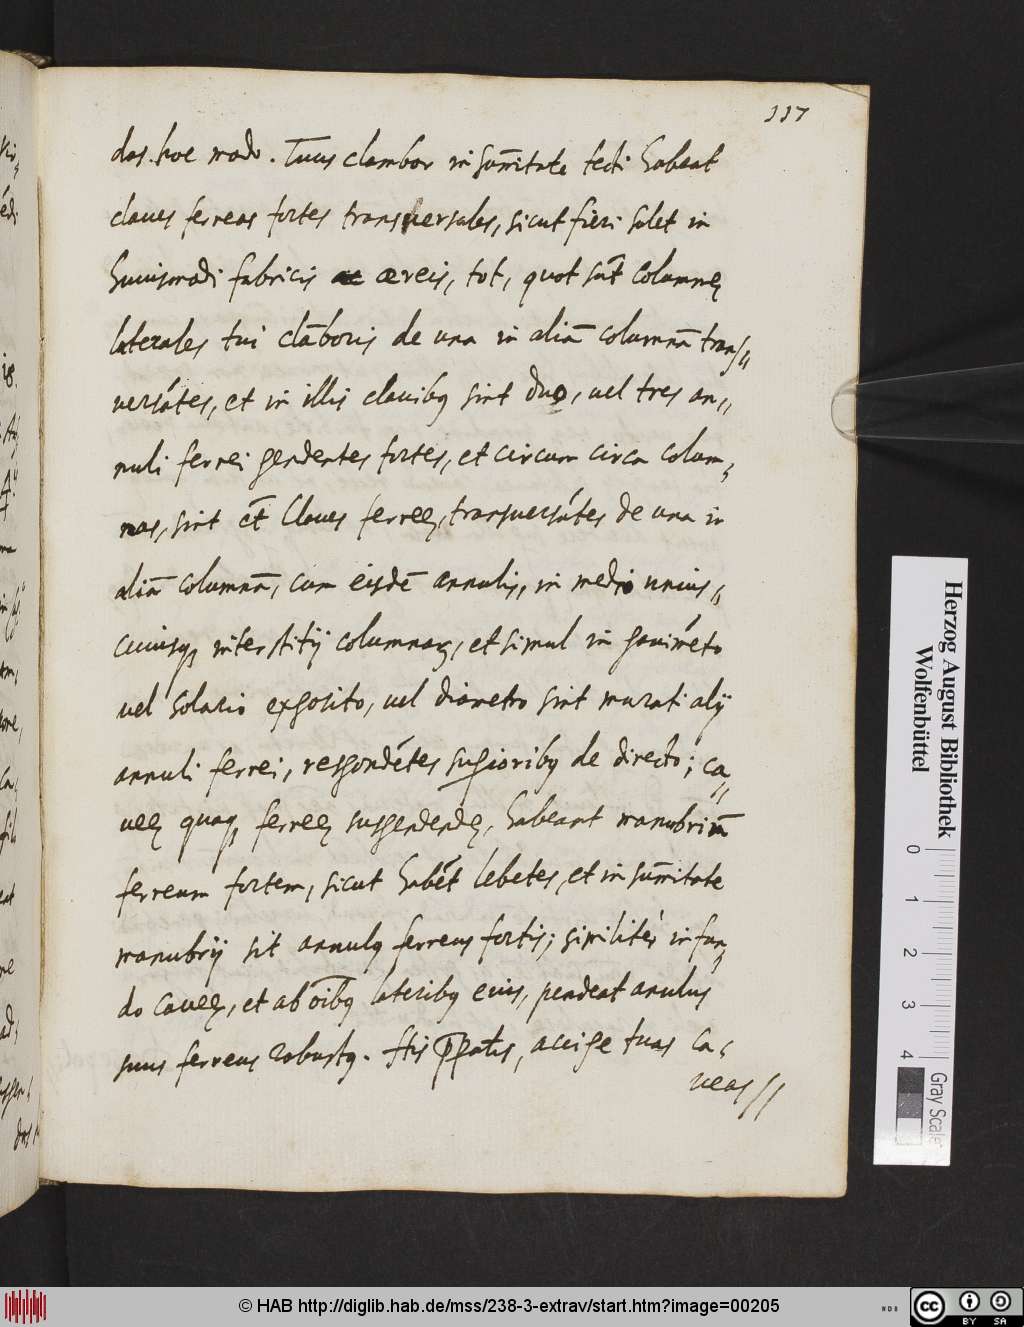 117
das. hoc modo. Tuus clambor in sum̄itate tecti habeat
claues ferreas fortes transuersales, sicut fieri solet in
huiusmodi fabricis aereis, tot, quot sūt columnę
laterales tui clāboris de una in aliā columnā trans//
uersātes, et in illis clauibq sint duo, uel tres an//
nuli ferrei pendentes fortes, et circum circa colum-
nas, sint ēt Claues ferreę, transuersātes de una in
aliā columnā, cum eisdē annulis, in medio unius//
cuiusqȝ interstitij columnaꝝ, et simul in pauimēto
uel solario exposito, uel diametro sint murati alij
annuli ferrei, respondētes supioribq de directo; ca//
ueę quoqȝ ferreę suspendendę, habeant manubriū
ferreum fortem, sicut habēt lebetes, et in sum̄itate
manubrij sit annulq ferreus fortis; similiter in fun-
do caueę, et ab oībq lateribq eius, pendeat anulus
suus ferreus robustq. His ꝑpatis, accipe tuas ca-
ueas //
Herzog August Bibliothek
Wolfenbüttel
0 1 2 3 4
Gray Scale
© HAB http://diglib.hab.de/mss/238-3-extrav/start.htm?image=00205
cc BY SA